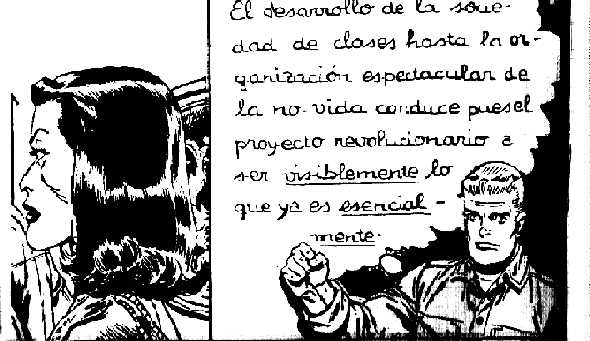 El desarrollo de la socie-
dad de clases hasta la or-
ganización espectacular de
la no-vida conduce pues el
proyecto revolucionario a
ser visiblemente lo
que ya es esencial-
mente.